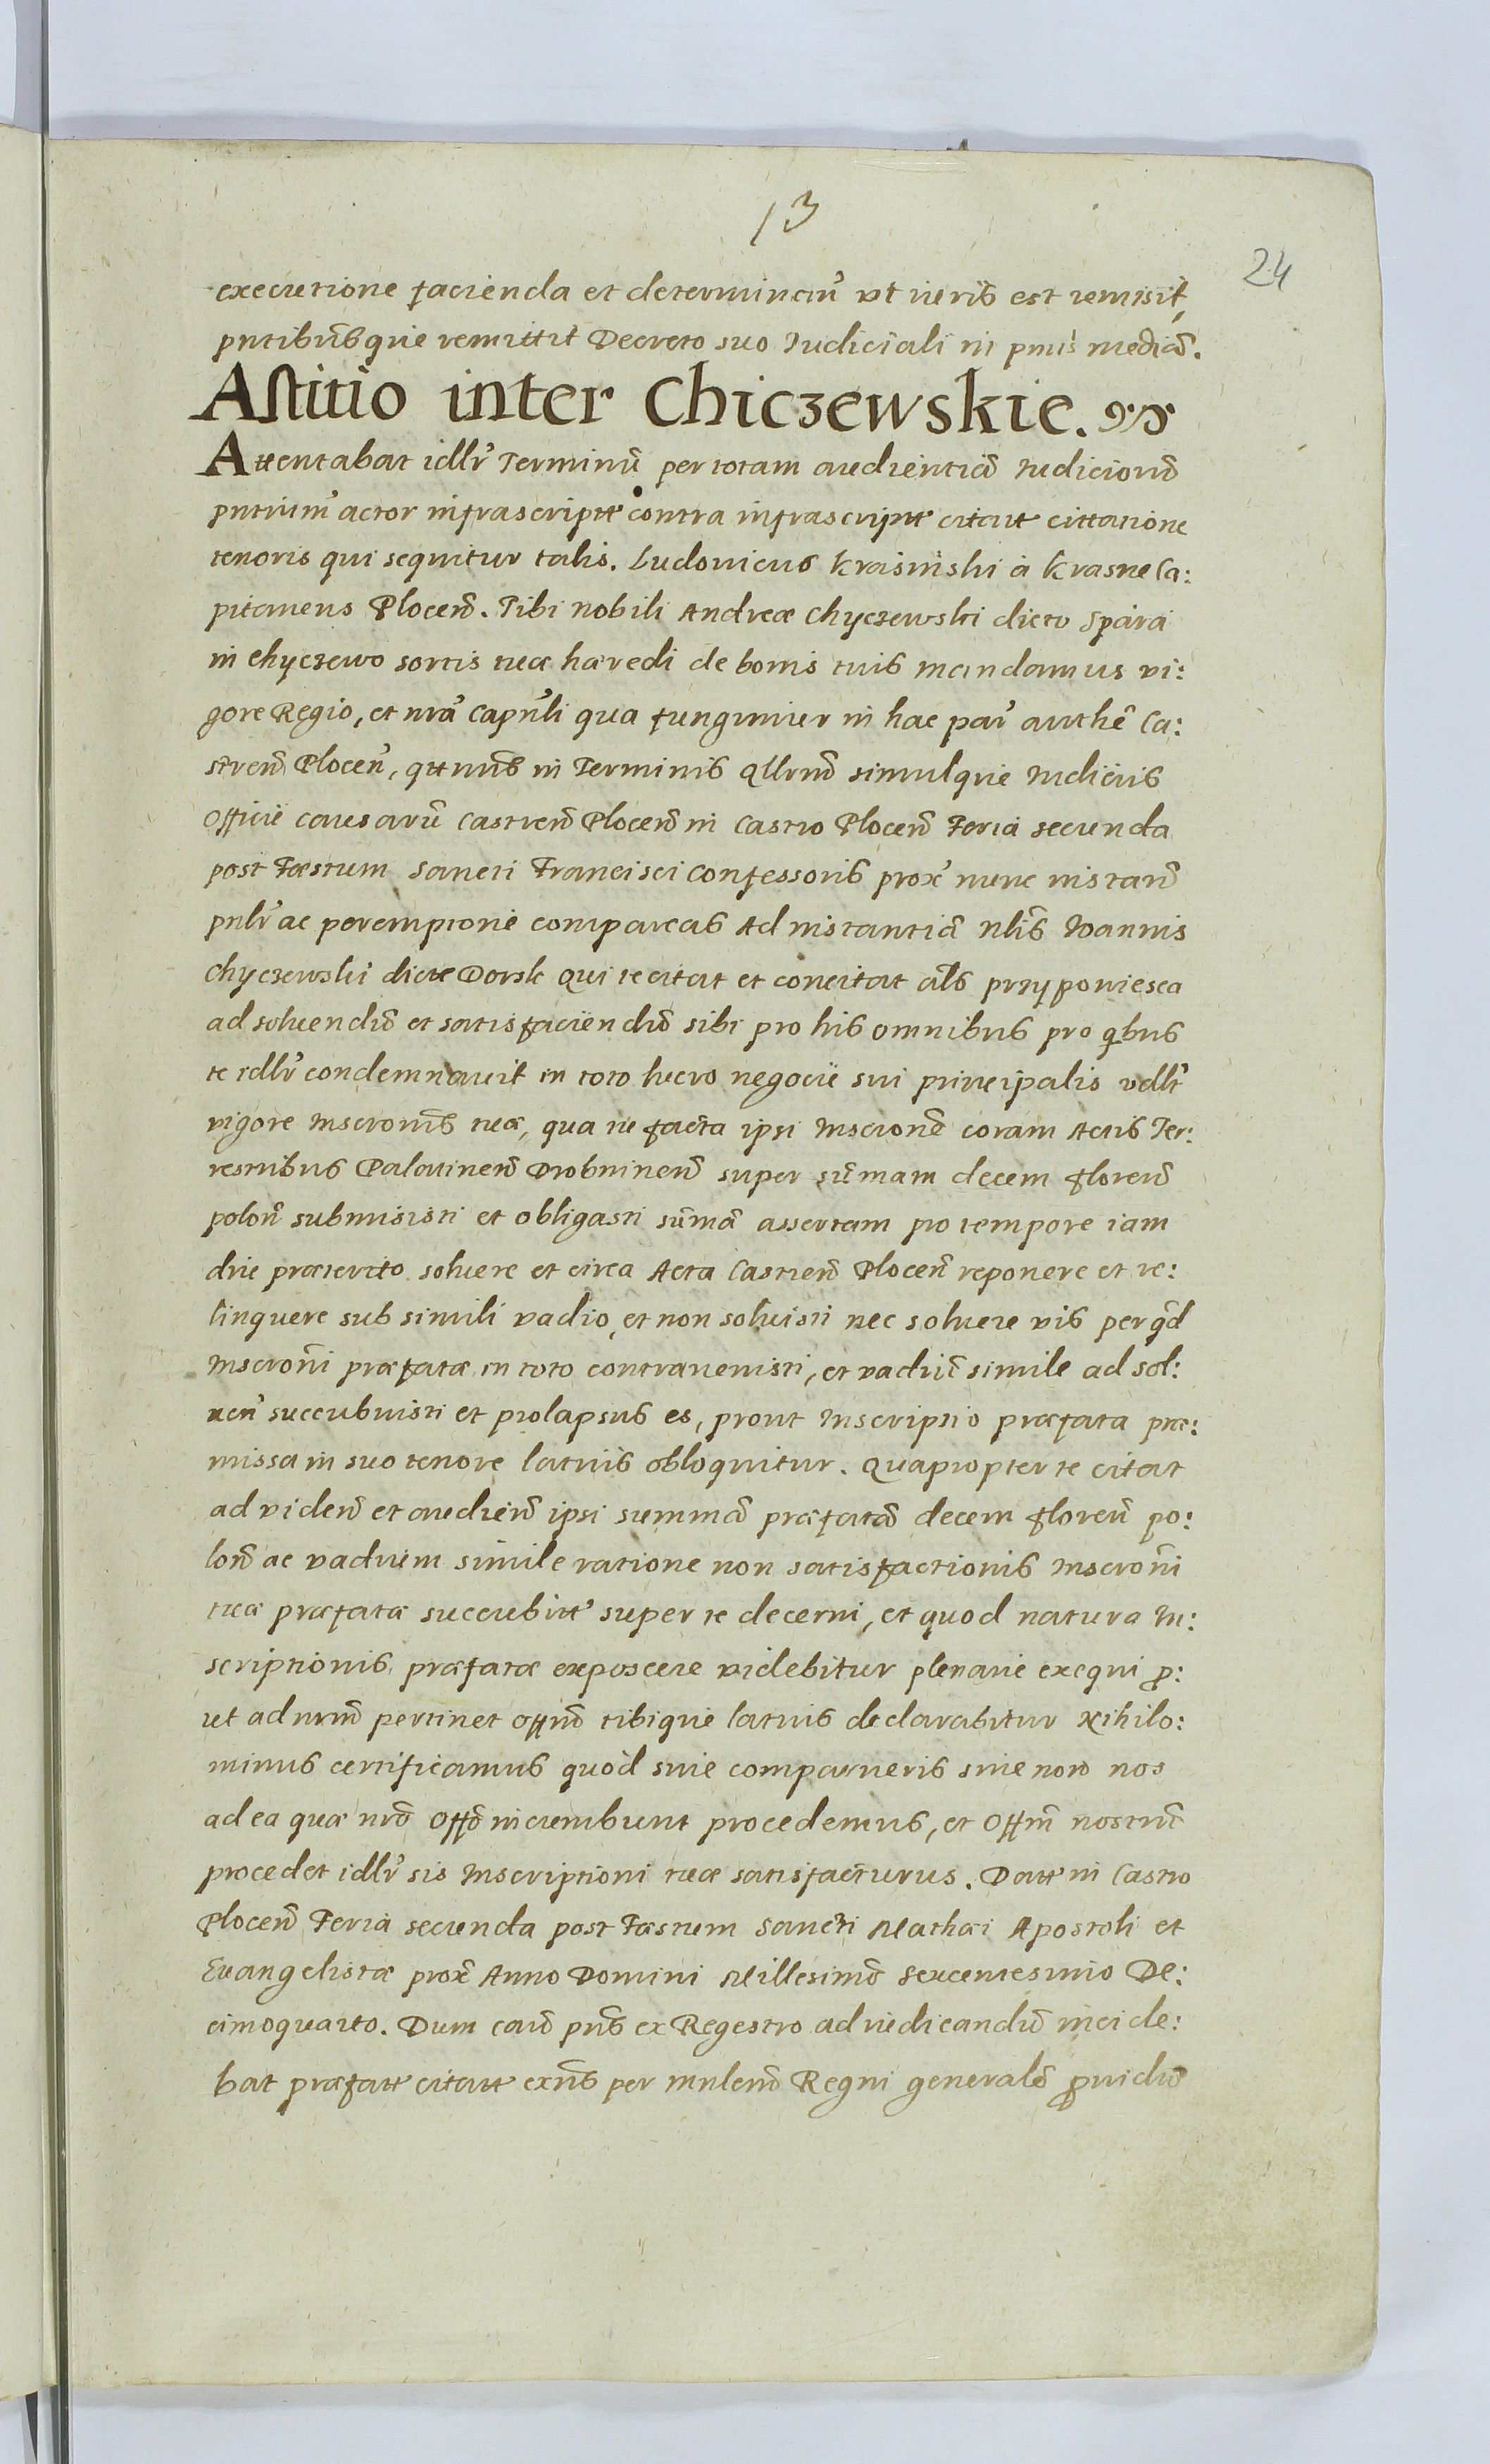 13
24
executione facienda et determinciũ vt iuris est remisit,
pntibusque remittit Decreto suo Iudiciali in pmis mediã.
Astitio inter Chiczewskie.
Attentabat idlr̃ Terminũ per totam audientiã Iudiciorũ
pntium actor infrascriptt contra infrascriptt citatt cittatione
tenoris qui sequitur talis. Ludovicus Krasinski à Krasne Ca:
pitaneus Plocen̄. Tibi nobili Andreæ Chyczewski dicto Spara
in Chyczewo sortis tuæ hæredi de bonis tuis mandamus vi:
gore Regio, et nrã Capnli qua fungimur in hac par̃ authẽ Ca:
stren̄ Plocen̄, qttnus in Terminis qllrnũ simulque Iudiciis
Officii causarũ Castren̄ Plocen̄ in Castro Plocen̄ Feria secunda
post Fæstum Sancti Francisci Confessoris prox̃ nunc instan̄
pnlr̃ ac peremptorie compareas Ad instantiã nlis Ioannis
Chyczewski dicti Dorsk qui te citat et concitat als przypowiesca
ad soluendũ et satisfaciendũ sibi pro his omnibus pro qbus
te idlr̃ condemnauit in toto lucro negocii sui principalis vdlt
vigore Inscronis tuæ, qua tu facta ipsi Inscrione coram Actis Ter:
restribus Palatinen̄ Drobninen̄ super sum̃am decem floren̄
polon̄ submisisti et obligasti sum̃ã assertam pro tempore iam
diu præterito soluere et circa Acta Castren̄ Plocen̄ reponere et re:
linquere sub simili vadio, et non soluisti nec soluere vis per qd
Inscroni præfatæ in toto contrauenisti, et vadiũ simile ad sol:
uen̄ succubuisti et prolapsus es, prout Inscriptio præfata præ:
missa in suo tenore latius obloquitur. Quapropter te citat
ad viden̄ et audien̄ ipsi summã præfatã decem floren̄ po:
lon̄ ac vadium simile ratione non satisfactionis Inscroni
tuæ præfatæ succubitt super te decerni, et quod natura In:
scriptionis præfatæ exposcere videbitur plenarie exequi p̱:
ut ad nrm̃ pertinet Offm̃ tibique latius declarabitur Nihilo:
minus certificamus quòd siue comparueris siue non nos
ad ea quæ nrõ Offõ incumbunt procedemus, et Offm̃ nostrũ
procedet idlr̃ sis Inscriptioni tuæ satisfacturus. Datt in Castro
Plocen̄ Feria secunda post Fæstum Sancti Mathæi Apostoli et
Euangelistæ prox̃ Anno Domini Millesimõ Sexcentesimo De:
cimoquarto. Dum cau͠ pns ex Regestro ad iudicandũ incide:
bat præfatt citatt exñs per mnlem̃ Regni generalẽ p̱uidũ